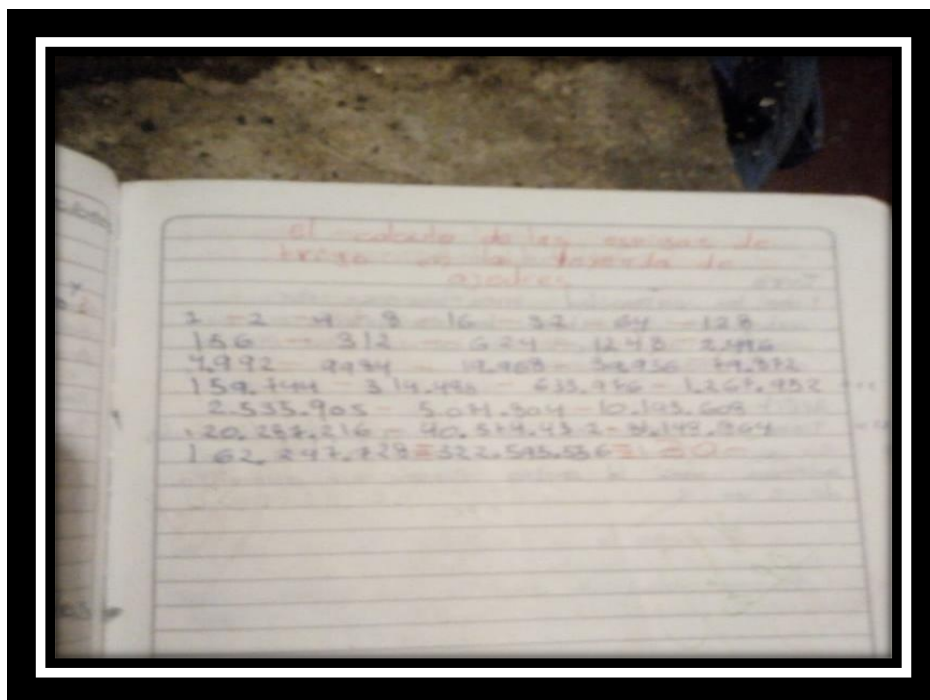 El calculo de las espigas de
trigo en la leyenda de
ajedres
1 - 2 - 4 - 8 - 16 - 32 - 64 - 128
156 - 312 - 624 - 1248 - 2.496
4.992 - 9984 - 19.968 - 39.936 - 79.872
159.744 - 314.488 - 633.976 - 1.267.952
2.535.905 - 5.071.804 - 10.143.608
20.287.216 - 40.574.432 - 81.148.864
162.247.728 = 322.595.536 =